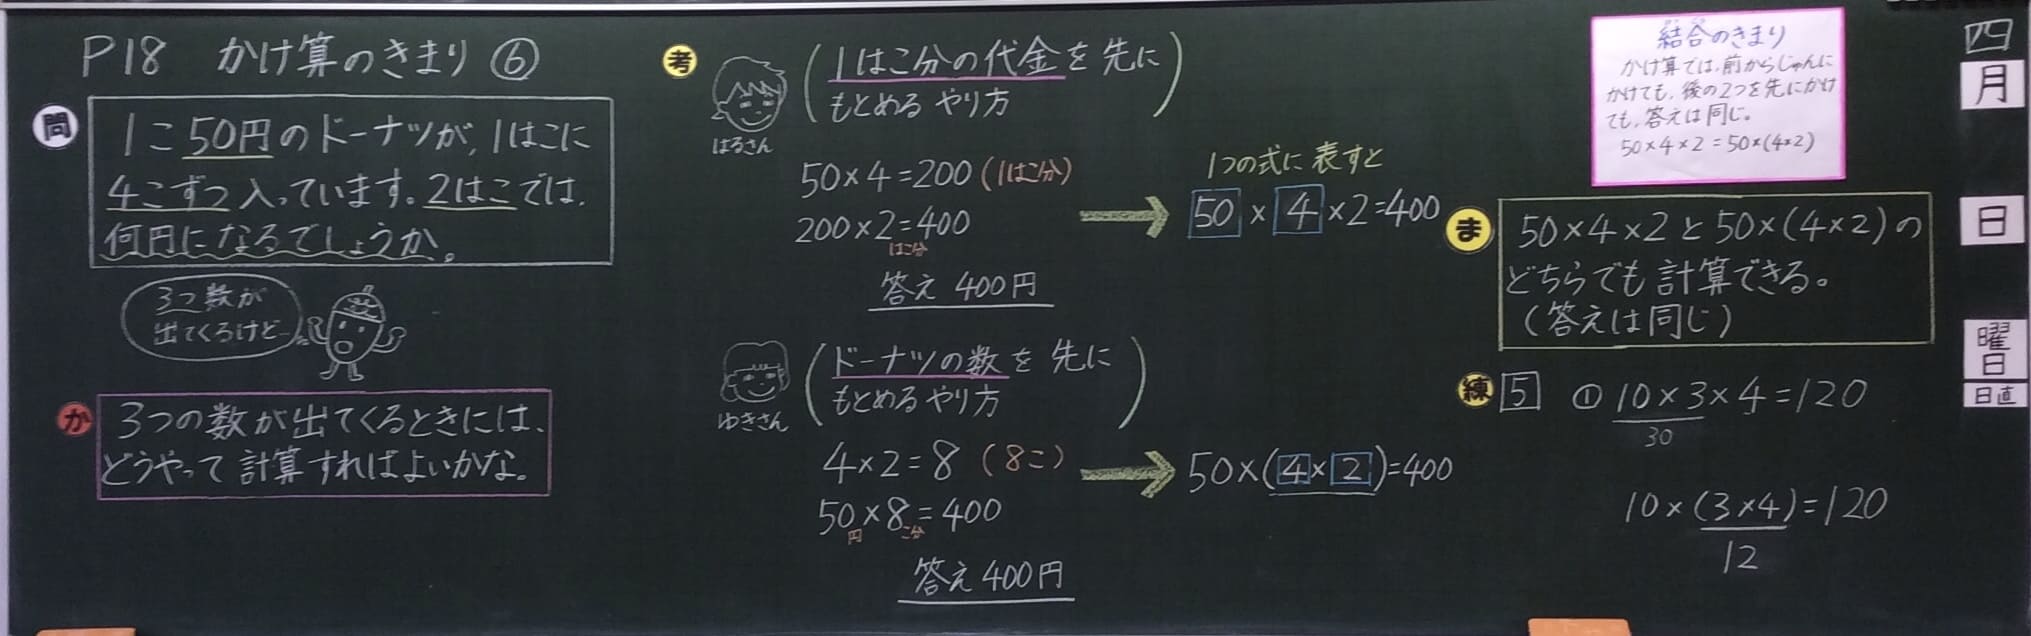 P18 かけ算のきまり⑥
問
1こ50円のドーナツが、1はこに
4こずつ入っています。2はこでは、
何円になるでしょうか。
3つ数が
出てくるけど…
か
3つの数が出てくるときには、
どうやって計算すればよいかな。
考
はるさん
(1はこ分の代金を先に
もとめるやり方)
50×4=200(1はこ分)
200×2=400
はこ分
答え 400円
1つの式に表すと
50×4×2=400
ゆきさん
(ドーナツの数を先に
もとめるやり方)
4×2=8(8こ)
50×8=400
円 こ分
答え400円
50×(4×2)=400
結合のきまり
かけ算では、前からじゅんに
かけても、後の2つを先にかけ
ても、答えは同じ。
50×4×2=50×(4×2)
ま
50×4×2と50×(4×2)の
どちらでも計算できる。
(答えは同じ)
練
5 ①10×3×4=120
30
10×(3×4)=120
12
四
月
日
曜
日
日直